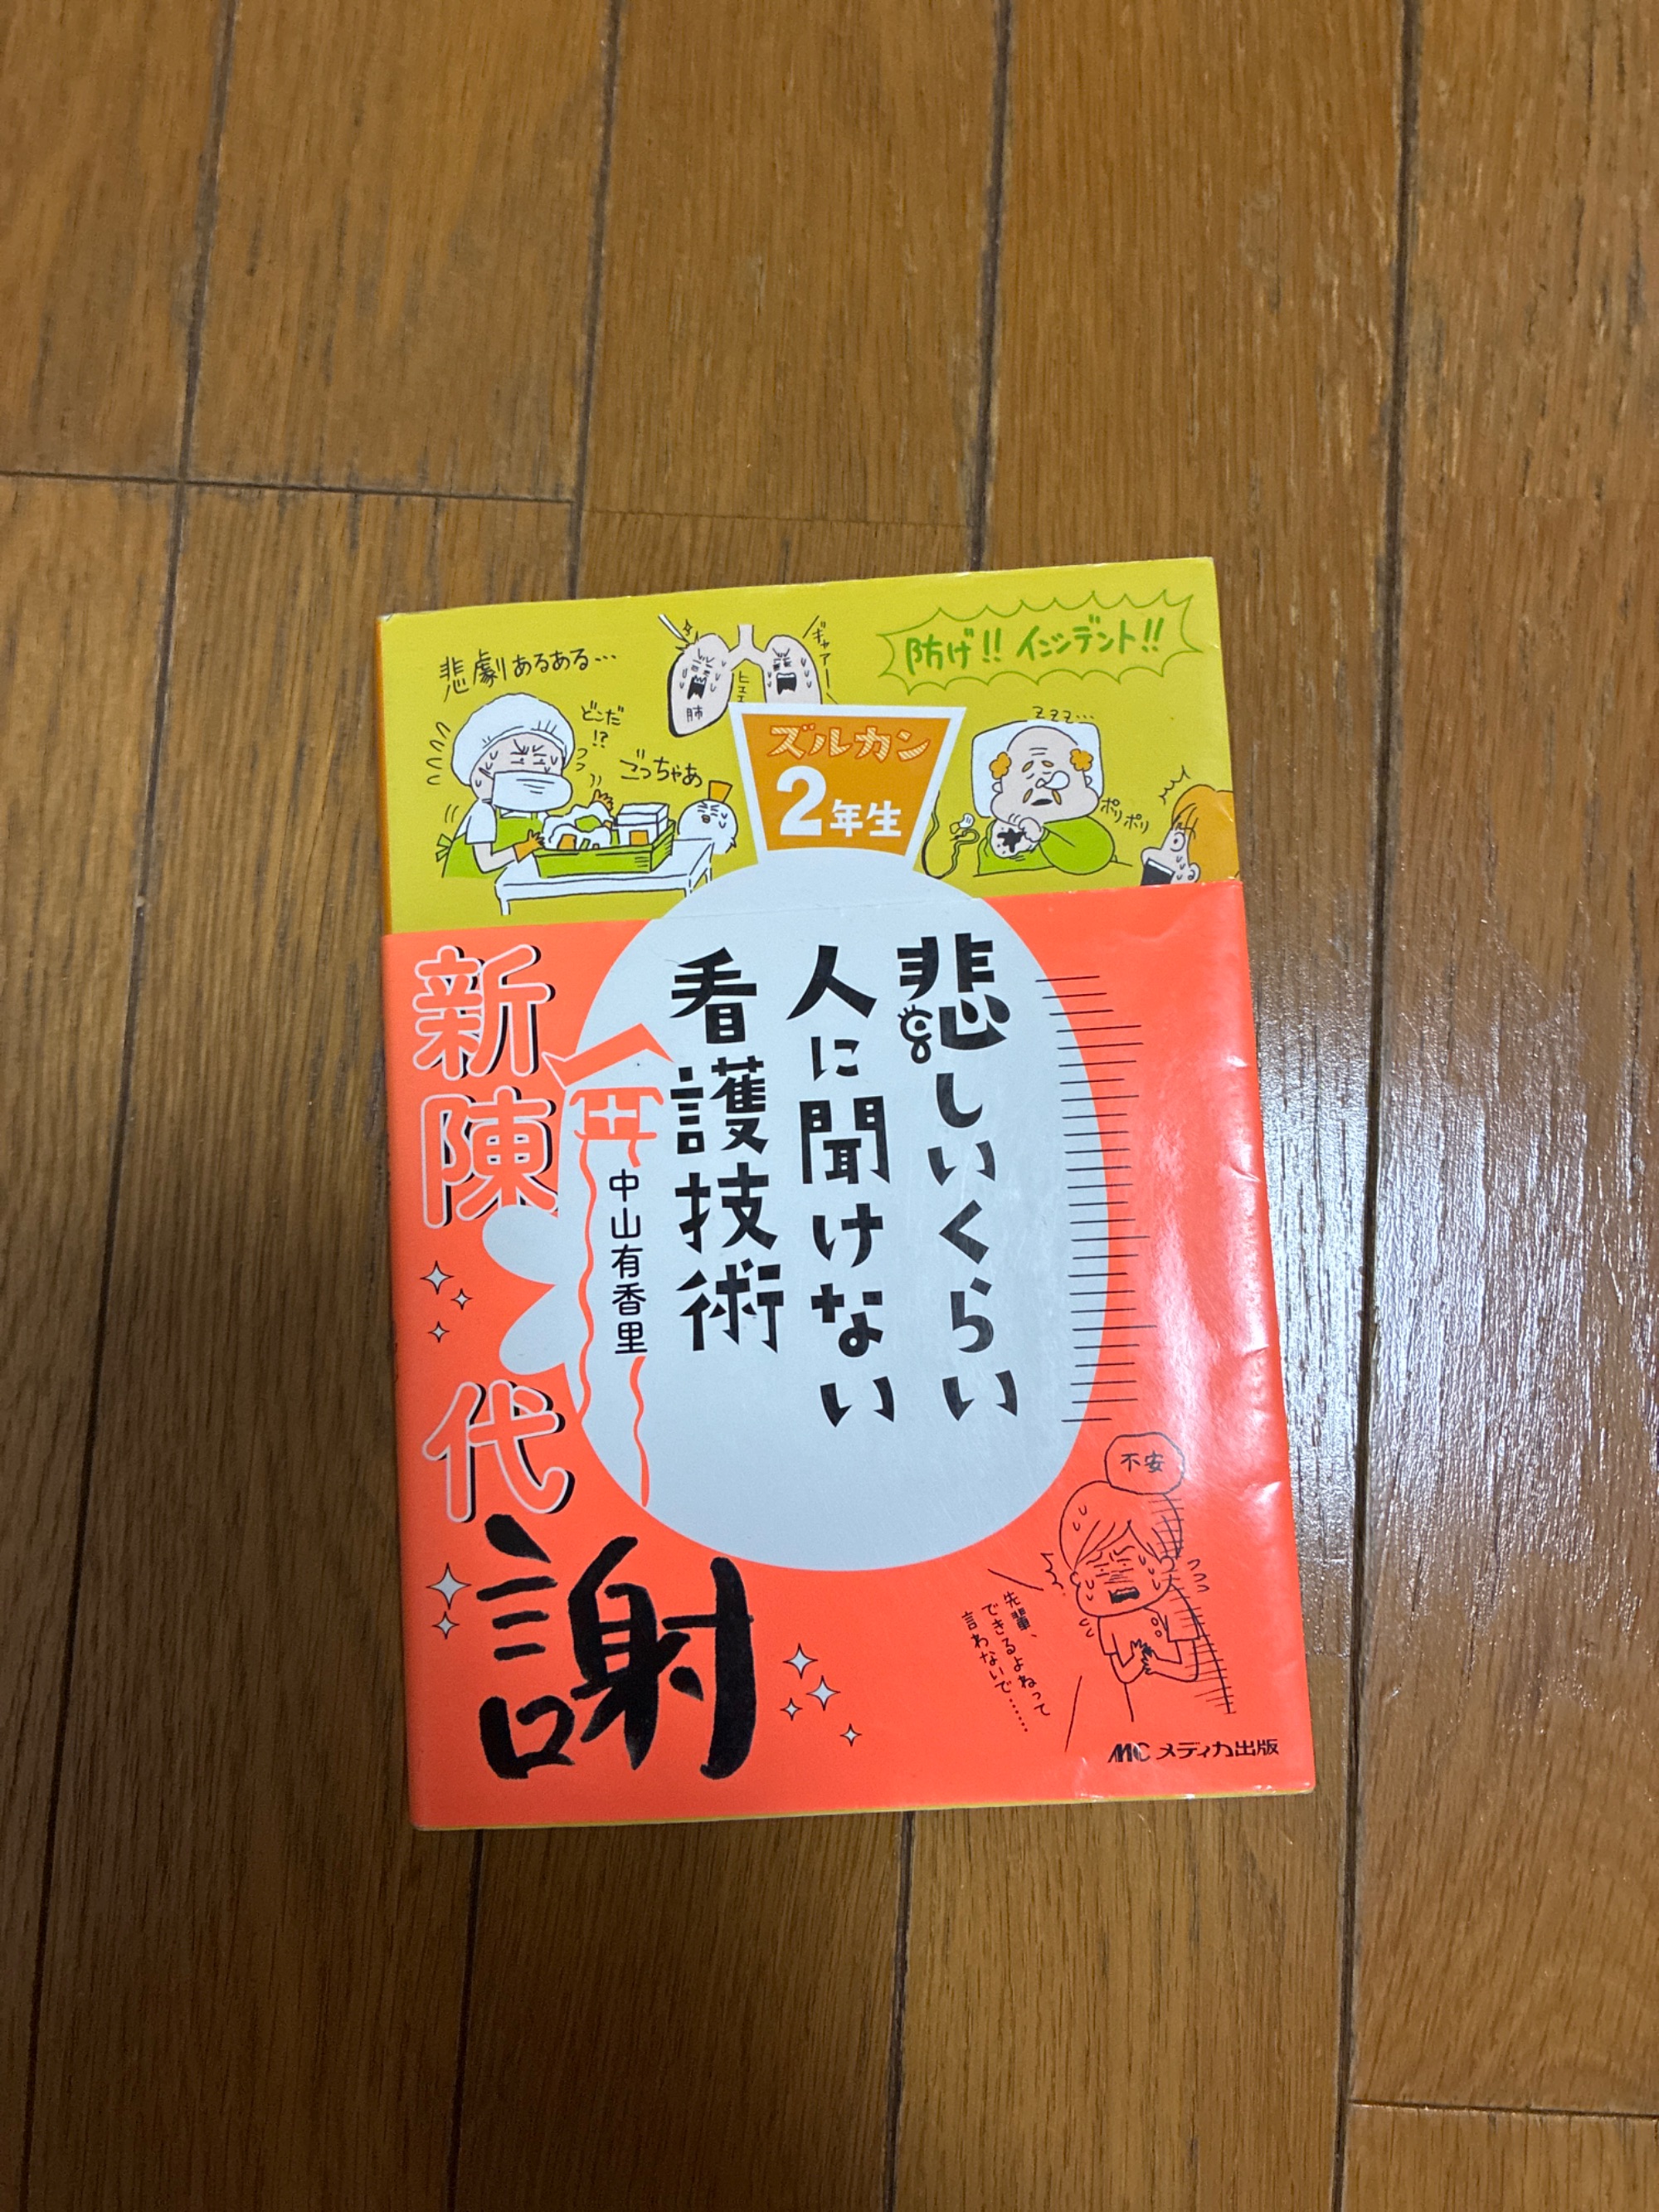 悲劇あるある…
どこだ!?
ごっちゃあ
肺
ヒエエ
ギャアー
防げ!! インシデント!!
zzz…
ポリポリ
ズルカン
2年生
悲しいくらい
人に聞けない
看護技術
中山有香里
新陳代謝
不安
先輩、
できるよねって
言わないで……
MC メディカ出版